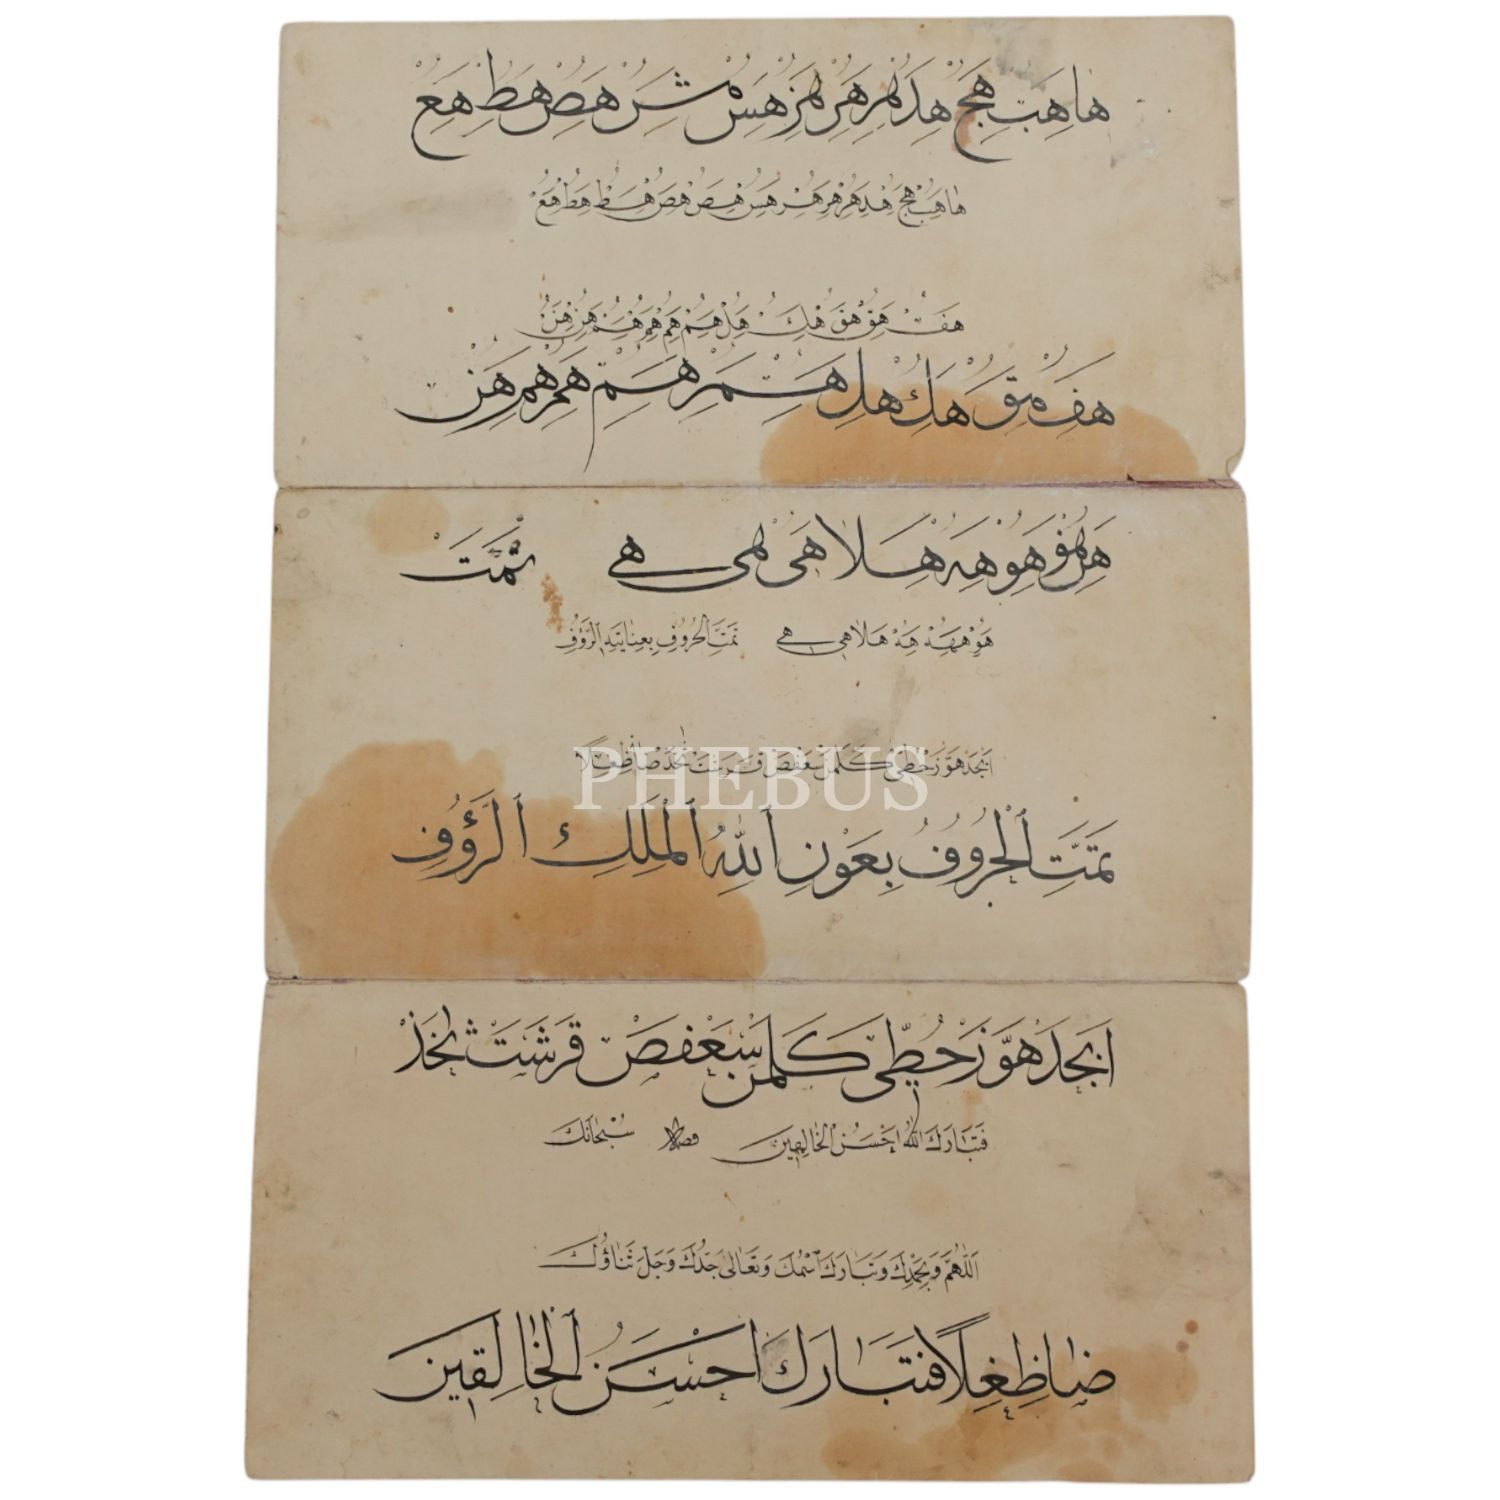 ها هب هج هد هر هر هز هس هش هص هط هع
ها هب هج هد هر هر هز هس هص هص هط هط هع
هف هق هق هك هل هم هم هم هم هن هن
هف هق هك هل هم هم هم هم هن
هن هو هو هه هلا هى هى هي تمّت
هو هه هه هلا هى هي تمّت الحروف بعناية الرّؤف
ابجد هوّز حطّى كلمن سعفص قرشت ثخذ ضاظغلا
PHEBUS
تمّت الحروف بعون الله الملك الرّؤف
ابجد هوّز حطّى كلمن سعفص قرشت ثخذ
فتبارك الله احسن الخالقين سبحانك
اللّهمّ وبحمدك وتبارك اسمك وتعالى جدّك وجلّ ثناؤك
ضاظغلا فتبارك احسن الخالقين